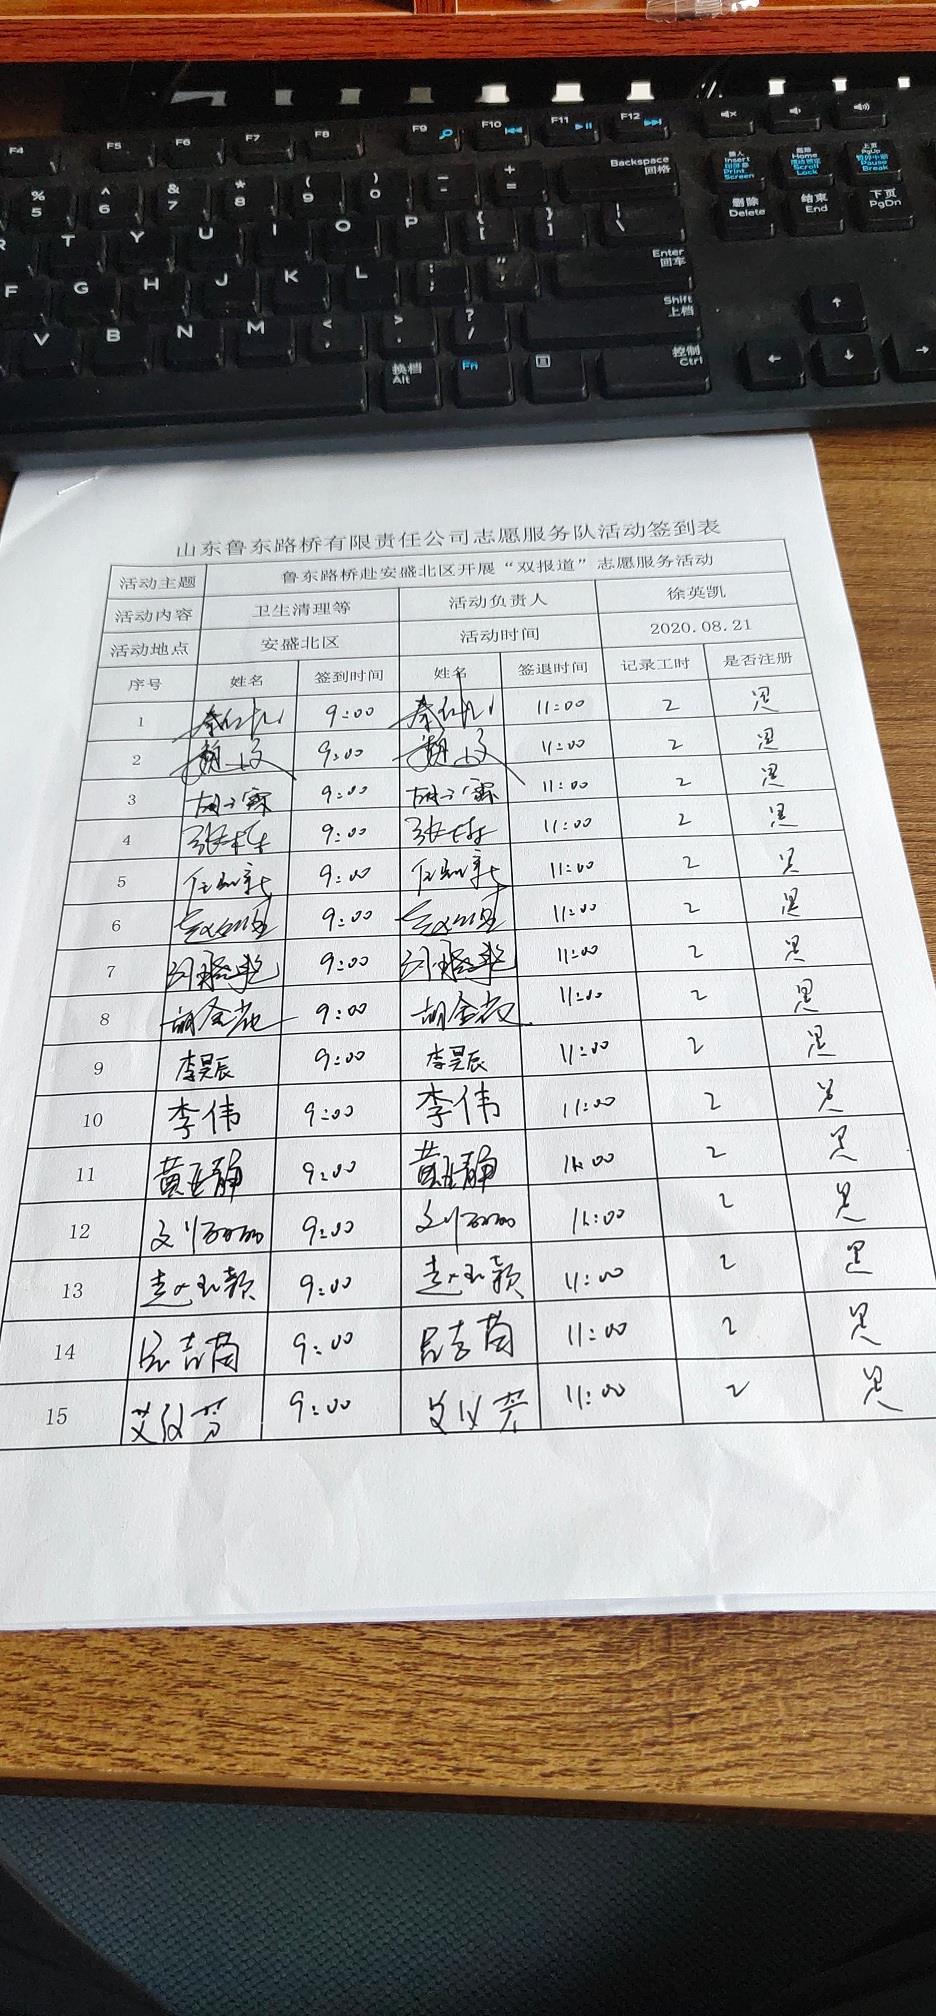 F4 F5 F6 F7 F8 F9 F10 F11 F12
% 5 ^ 6 & 7 * 8 ( 9 ) 0 - + = Backspace 回格
插入 Insert Print Screen Home Scroll Lock 上页 PgUp Pause Break
删除 Delete 结束 End 下页 PgDn
R T Y U I O P { [ } ] | \
F G H J K L : ; " ' Enter 回车
V B N M < , > . ? / Shift 上档
换档 Alt Fn 控制 Ctrl
山东鲁东路桥有限责任公司志愿服务队活动签到表
活动主题 鲁东路桥赴安盛北区开展“双报道”志愿服务活动
活动内容 卫生清理等 活动负责人 徐英凯
活动地点 安盛北区 活动时间 2020.08.21
序号 姓名 签到时间 姓名 签退时间 记录工时 是否注册
1 9:00 11:00 2 是
2 9:00 11:00 2 是
3 9:00 11:00 2 是
4 9:00 11:00 2 是
5 9:00 11:00 2 是
6 9:00 11:00 2 是
7 9:00 11:00 2 是
8 9:00 11:00 2 是
9 李昊辰 9:00 李昊辰 11:00 2 是
10 李伟 9:00 李伟 11:00 2 是
11 黄亚静 9:00 黄亚静 11:00 2 是
12 9:00 11:00 2 是
13 赵玉颖 9:00 赵玉颖 11:00 2 是
14 9:00 11:00 2 是
15 9:00 11:00 2 是